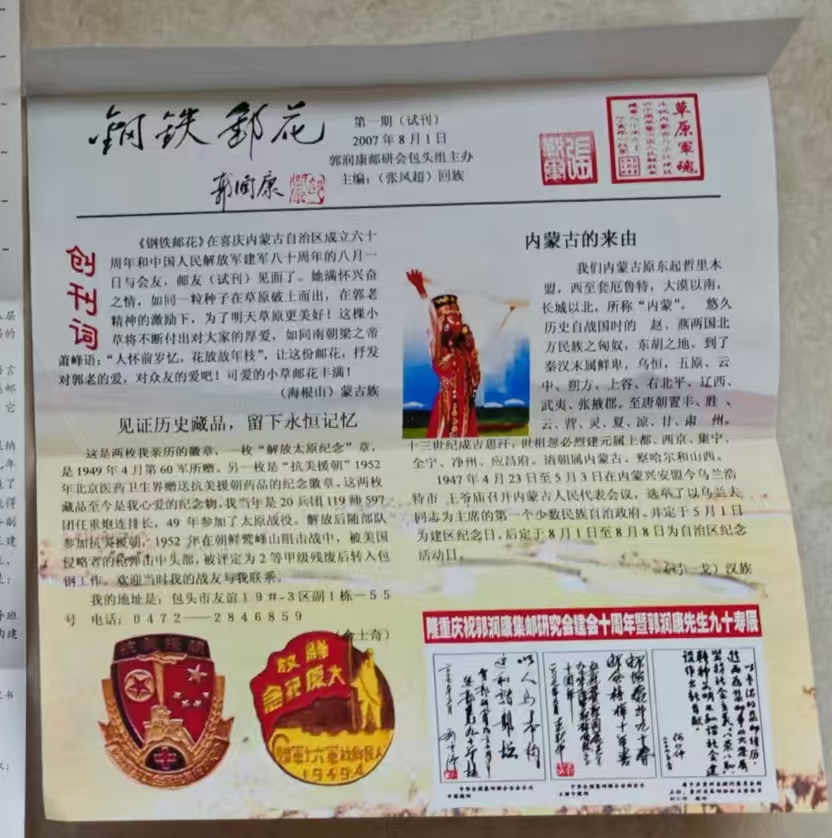 钢铁邮花
郭润康
第一期（试刊）
2007年8月1日
郭润康邮研会包头组主办
主编：（张凤超）回族
草原军魂
创刊词
《钢铁邮花》在喜庆内蒙古自治区成立六十
周年和中国人民解放军建军八十周年的八月一
日与会友，邮友（试刊）见面了。她满怀兴奋
之情，如同一粒种子在草原破土而出，在郭老
精神的激励下，为了明天草原更美好！这棵小
草将不断付出对大家的厚爱，如同南朝梁之帝
萧峰语：“人怀前岁忆，花放故年枝”，让这份邮花，抒发
对郭老的爱，对众友的爱吧！可爱的小草邮花丰满！
（海根山）蒙古族
见证历史藏品，留下永恒记忆
这是两枚我亲历的徽章，一枚“解放太原纪念”章，
是1949年4月第60军所赠。另一枚是“抗美援朝”1952
年北京医药卫生界赠送抗美援朝药品的纪念徽章。这两枚
藏品至今是我心爱的纪念物。我当年是20兵团119师597
团任重炮连排长，49年参加了太原战役。解放后随部队
参加抗美援朝，1952年在朝鲜鹫峰山阻击战中，被美国
侵略者的枪弹击中头部，被评定为2等甲级残废后转入包
钢工作。欢迎当时我的战友与我联系。
我的地址是：包头市友谊19#-3区副1栋—55
号 电话：0472——2846859
士奇）
内蒙古的来由
我们内蒙古原东起哲里木
盟，西至套厄鲁特，大漠以南，
长城以北，所称“内蒙”。 悠久
历史自战国时的 赵、燕两国北
方民族之匈奴，东胡之地。到了
秦汉末属鲜卑，乌恒，五原、云
中、朔方、上谷、右北平、辽西、
武夷、张掖郡。至唐朝置丰、胜、
云、营、灵、夏、凉、甘、肃 州。
十三世纪成吉思汗，世祖忽必烈建元属上都、西京、集宁、
全宁、净州、应昌府。清朝属内蒙古、察哈尔和山西。
1947年4月23日至5月3日在内蒙兴安盟今乌兰浩
特市 王爷庙召开内蒙古人民代表会议，选举了以乌兰夫
同志为主席的第一个少数民族自治政府。并定于5月1日
为建区纪念日。后定于8月1日至8月8日为自治区纪念
活动日。
戈）汉族
抗美援朝
解放
太原纪念
1949.4
隆重庆祝郭润康集邮研究会建会十周年暨郭润康先生九十寿辰